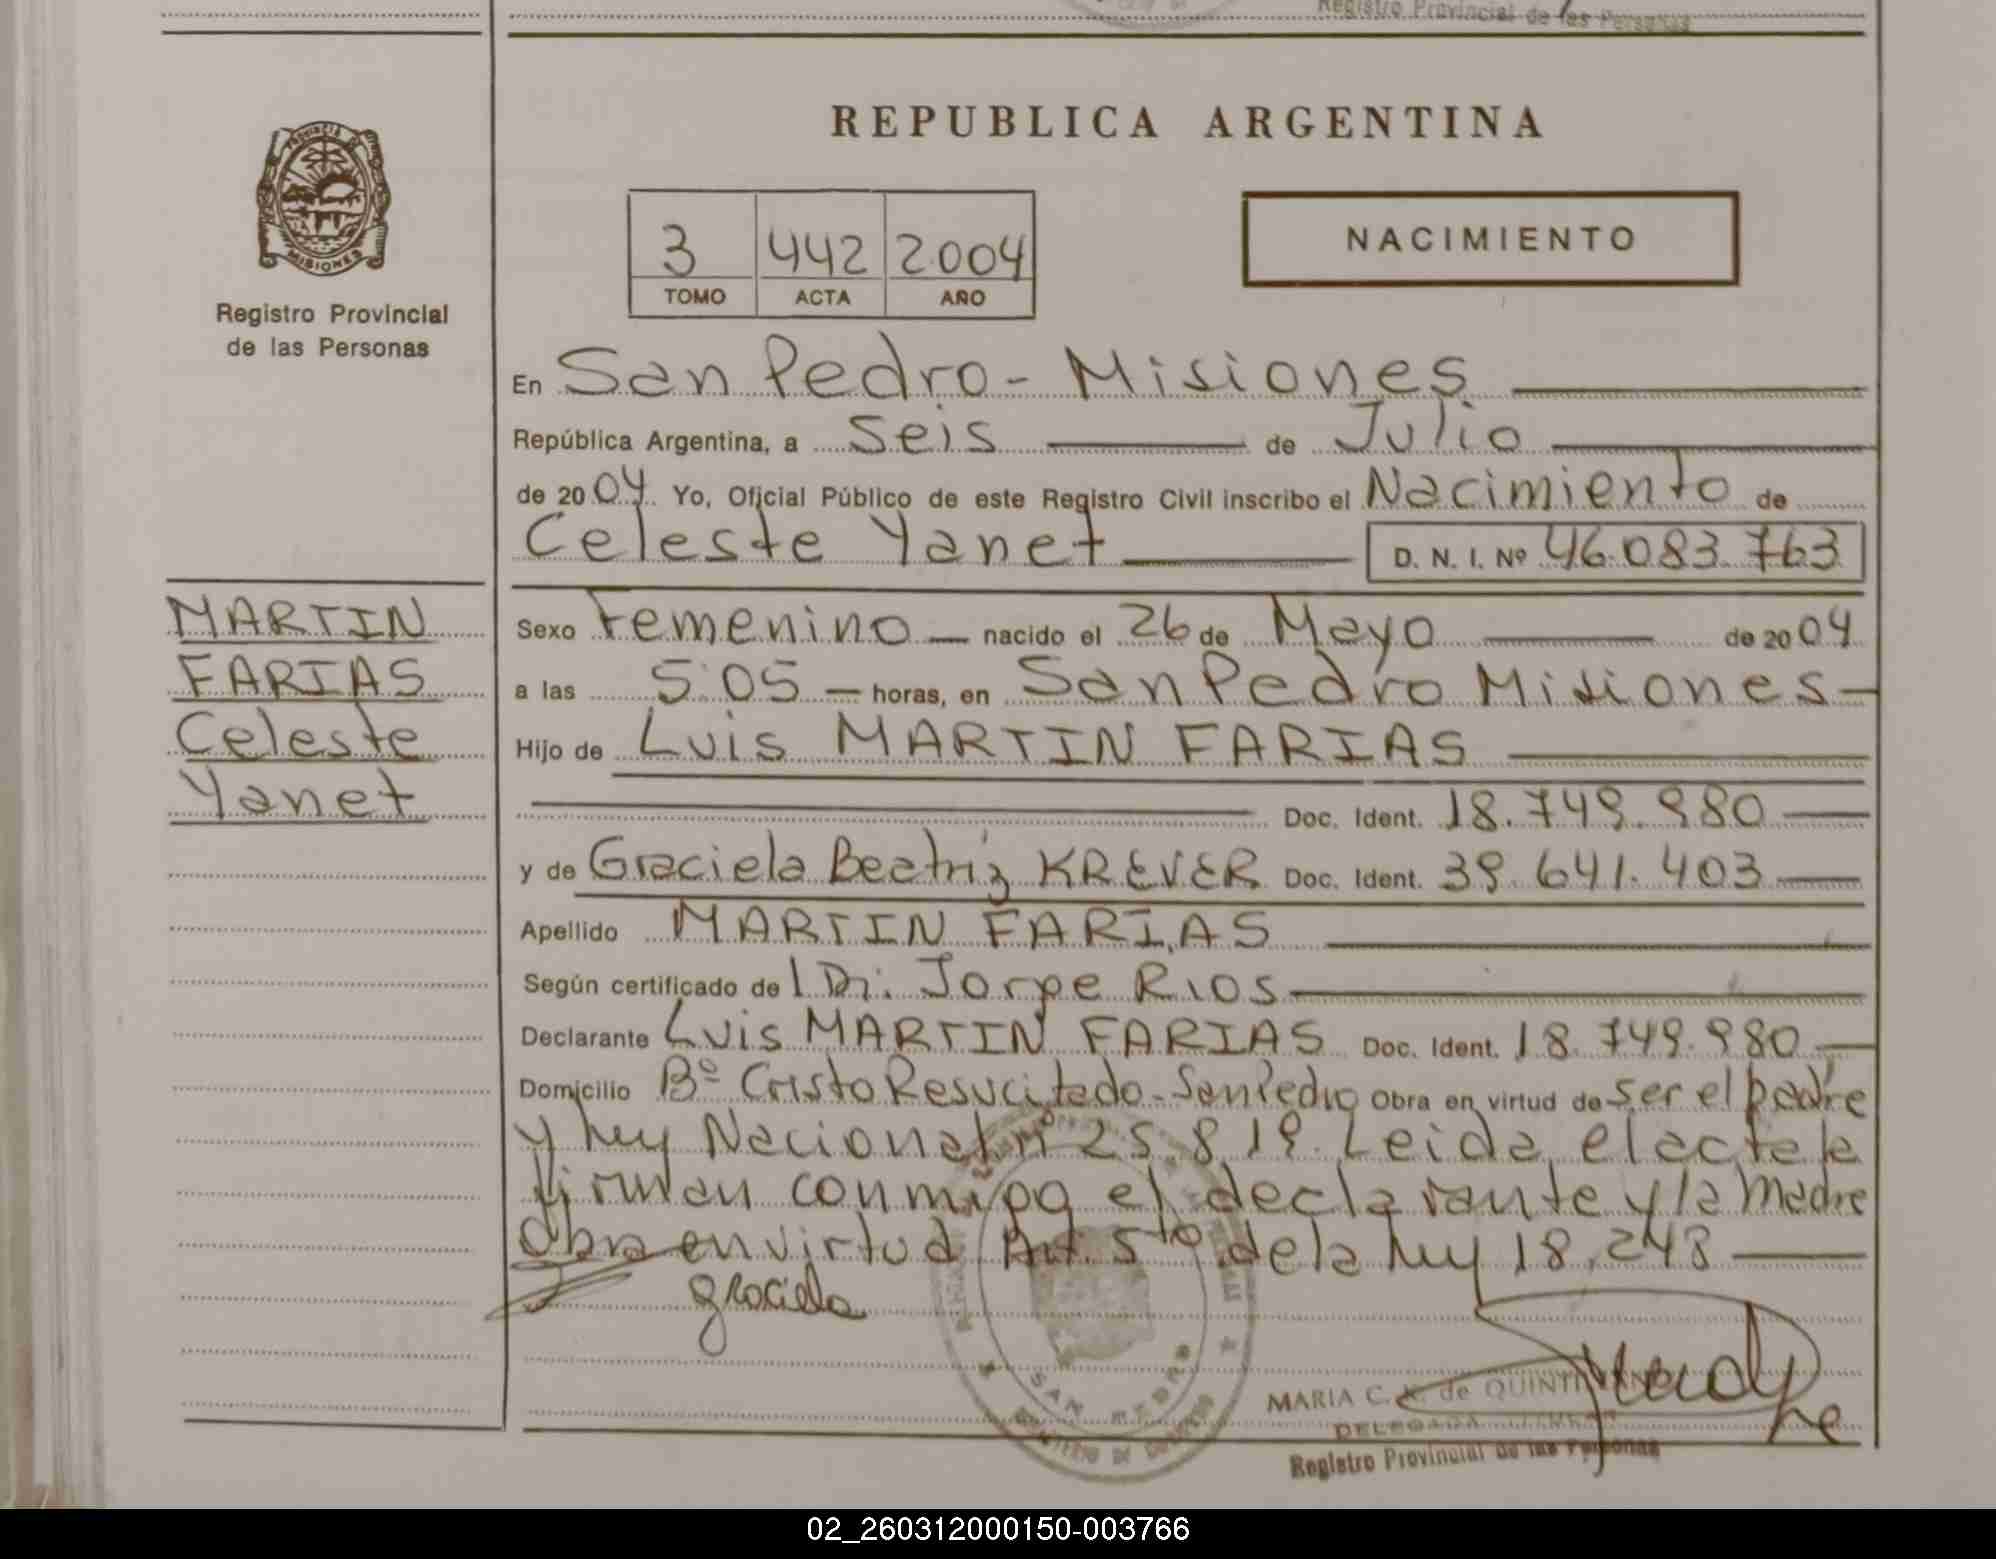 Registro Provincial de las Personas
PROVINCIA DE
MISIONES
Registro Provincial
de las Personas
REPUBLICA ARGENTINA
3 442 2004
TOMO ACTA AÑO
NACIMIENTO
En San Pedro - Misiones
República Argentina, a seis de Julio
de 2004 Yo, Oficial Público de este Registro Civil inscribo el Nacimiento de
Celeste Yanet D. N. I. Nº 46.083.763
MARTIN
FARIAS
Celeste
Yanet
Sexo Femenino nacido el 26 de Mayo de 2004
a las 5:05 horas, en San Pedro Misiones
Hijo de Luis MARTIN FARIAS
Doc. Ident. 18.749.980
y de Graciela Beatriz KREVER Doc. Ident. 39.641.403
Apellido MARTIN FARIAS
Según certificado de Dr. Jorge Rios
Declarante Luis MARTIN FARIAS Doc. Ident. 18.749.980
Domicilio Bº Cristo Resucitado - San Pedro Obra en virtud de ser el padre
y ley Nacional nº 25.819. Leida el acta la
firman conmigo el declarante y la madre
Obra en virtud Art. 5to de la ley 18.248
graciela
SAN PEDRO
MINISTERIO DE GOBIERNO
MARIA C. K. de QUINTANA
DELEGADA TITULAR
Registro Provincial de las Personas
02_260312000150-003766